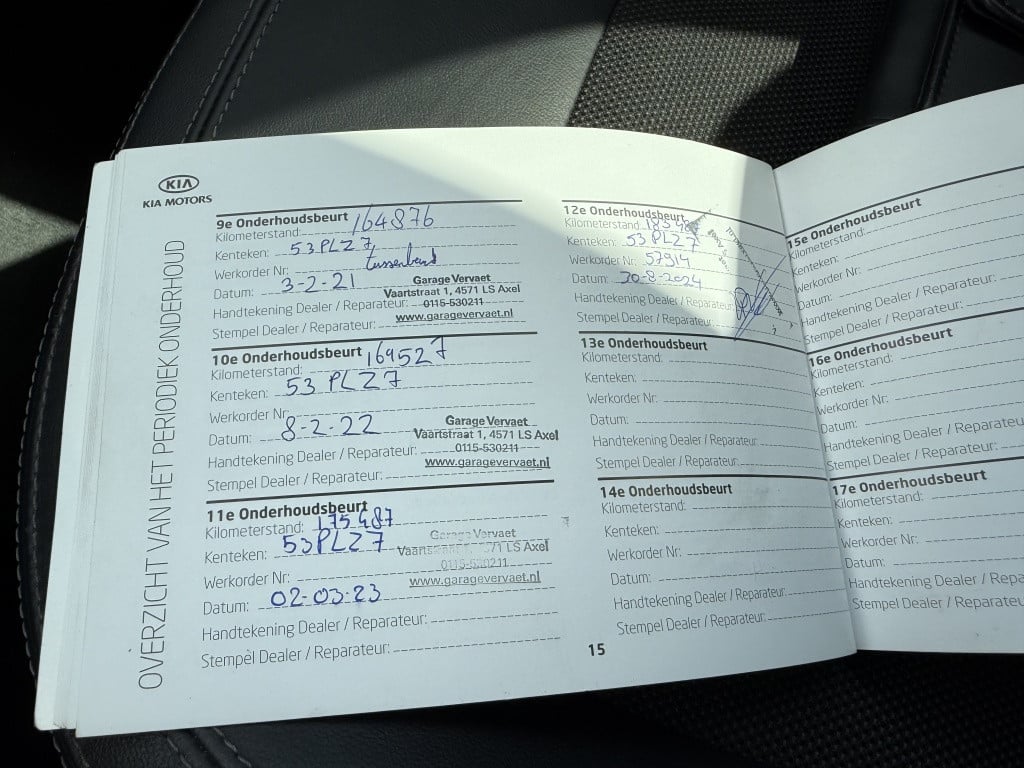 KIA
KIA MOTORS
OVERZICHT VAN HET PERIODIEK ONDERHOUD
9e Onderhoudsbeurt
Kilometerstand: 164876
Kenteken: 53PLZ7
Werkorder Nr: tussenbeurt
Datum: 3-2-21
Handtekening Dealer / Reparateur:
Stempel Dealer / Reparateur:
Garage Vervaet
Vaartstraat 1, 4571 LS Axel
0115-530211
www.garagevervaet.nl
10e Onderhoudsbeurt
Kilometerstand: 169527
Kenteken: 53 PLZ7
Werkorder Nr:
Datum: 8-2-22
Handtekening Dealer / Reparateur:
Stempel Dealer / Reparateur:
Garage Vervaet
Vaartstraat 1, 4571 LS Axel
0115-530211
www.garagevervaet.nl
11e Onderhoudsbeurt
Kilometerstand: 175487
Kenteken: 53PLZ7
Werkorder Nr:
Datum: 02-03-23
Handtekening Dealer / Reparateur:
Stempel Dealer / Reparateur:
Garage Vervaet
71 LS Axel
0115-530211
www.garagevervaet.nl
12e Onderhoudsbeurt
Kilometerstand:
Kenteken: 53PLZ7
Werkorder Nr: 57914
Datum: 30-8-2024
Handtekening Dealer / Reparateur:
Stempel Dealer / Reparateur:
13e Onderhoudsbeurt
Kilometerstand:
Kenteken:
Werkorder Nr:
Datum:
Handtekening Dealer / Reparateur:
Stempel Dealer / Reparateur:
14e Onderhoudsbeurt
Kilometerstand:
Kenteken:
Werkorder Nr:
Datum:
Handtekening Dealer / Reparateur:
Stempel Dealer / Reparateur:
15
15e Onderhoudsbeurt
Kilometerstand:
Kenteken:
Werkorder Nr:
Datum:
Handtekening Dealer / Reparateur:
Stempel Dealer / Reparateur:
16e Onderhoudsbeurt
Kilometerstand:
Kenteken:
Werkorder Nr:
Datum:
Handtekening Dealer / Reparateu
Stempel Dealer / Reparateur:
17e Onderhoudsbeurt
Kilometerstand:
Kenteken:
Werkorder Nr:
Datum:
Handtekening Dealer / Repa
Stempel Dealer / Reparateur